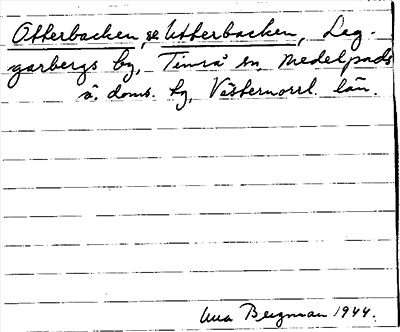 Otterbacken, se Utterbacken, Leg-
garbergs by, Timrå sn, Medelpads
v. doms. hg, Västernorrl. län.
Una Bergman 1944.